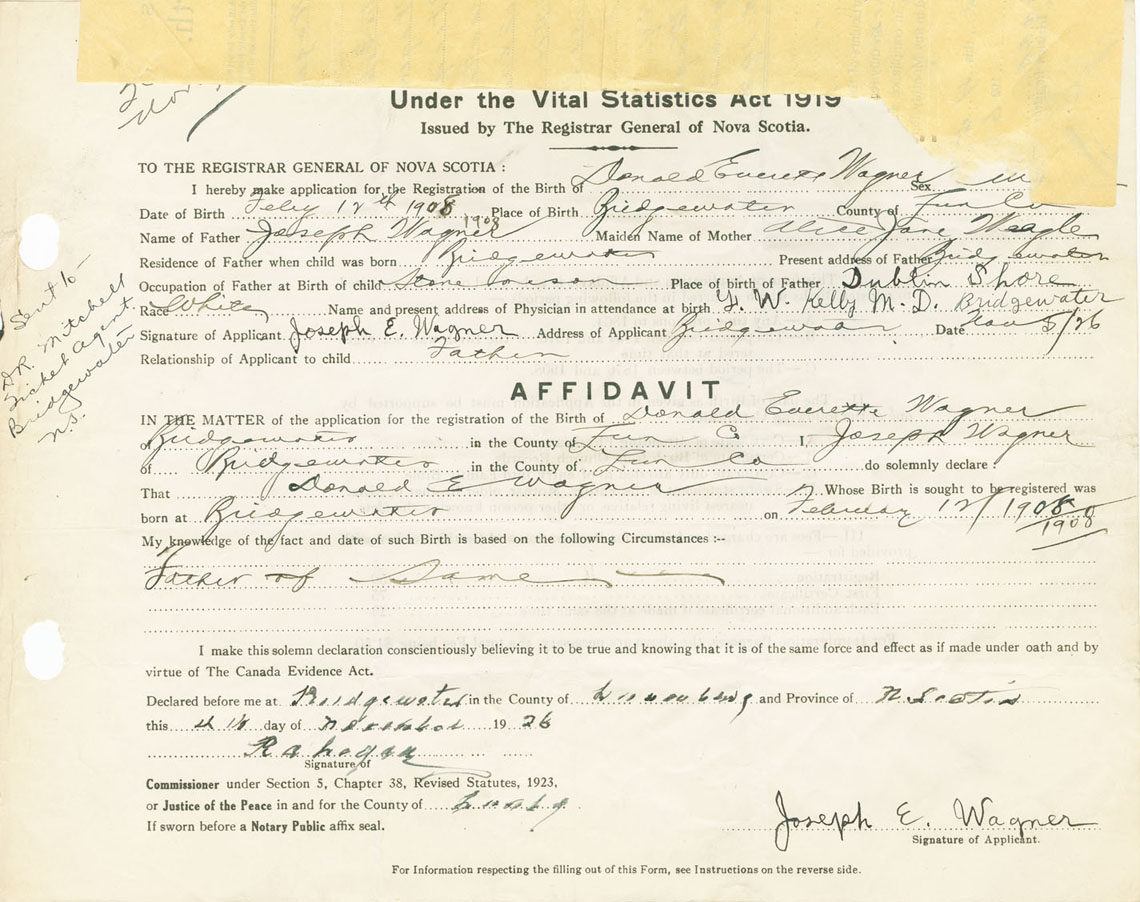 Under the Vital Statistics Act 1919
Issued by The Registrar General of Nova Scotia.
TO THE REGISTRAR GENERAL OF NOVA SCOTIA :
I hereby make application for the Registration of the Birth of Donald Everette Wagner Sex M
Date of Birth Feby 12th 1908 1908 Place of Birth Bridgewater County of Lun Co
Name of Father Joseph Wagner Maiden Name of Mother Alice Jane Weagle
Residence of Father when child was born Bridgewater Present address of Father Bridgewater
Occupation of Father at Birth of child Stone Place of birth of Father Dublin Shore
Race White Name and present address of Physician in attendance at birth W. Kelly M. D. Bridgewater
Signature of Applicant Joseph E. Wagner Address of Applicant Bridgewater Date Nov 5/26
Relationship of Applicant to child Father
Sent to
D.R. Mitchell
Ticket Agent.
Bridgewater
N.S.
AFFIDAVIT
IN THE MATTER of the application for the registration of the Birth of Donald Everette Wagner
of Bridgewater in the County of Lun Co I, Joseph Wagner
of Bridgewater in the County of Lun Co do solemnly declare :
That Donald E Wagner Whose Birth is sought to be registered was
born at Bridgewater on February 12/ 1908
1908
My knowledge of the fact and date of such Birth is based on the following Circumstances :--
Father of Same
I make this solemn declaration conscientiously believing it to be true and knowing that it is of the same force and effect as if made under oath and by
virtue of The Canada Evidence Act.
Declared before me at Bridgewater in the County of Lunenburg and Province of N. Scotia
this day of November 19 26
Signature of
Commissioner under Section 5, Chapter 38, Revised Statutes, 1923,
or Justice of the Peace in and for the County of
If sworn before a Notary Public affix seal.
Joseph E. Wagner
Signature of Applicant.
For Information respecting the filling out of this Form, see Instructions on the reverse side.